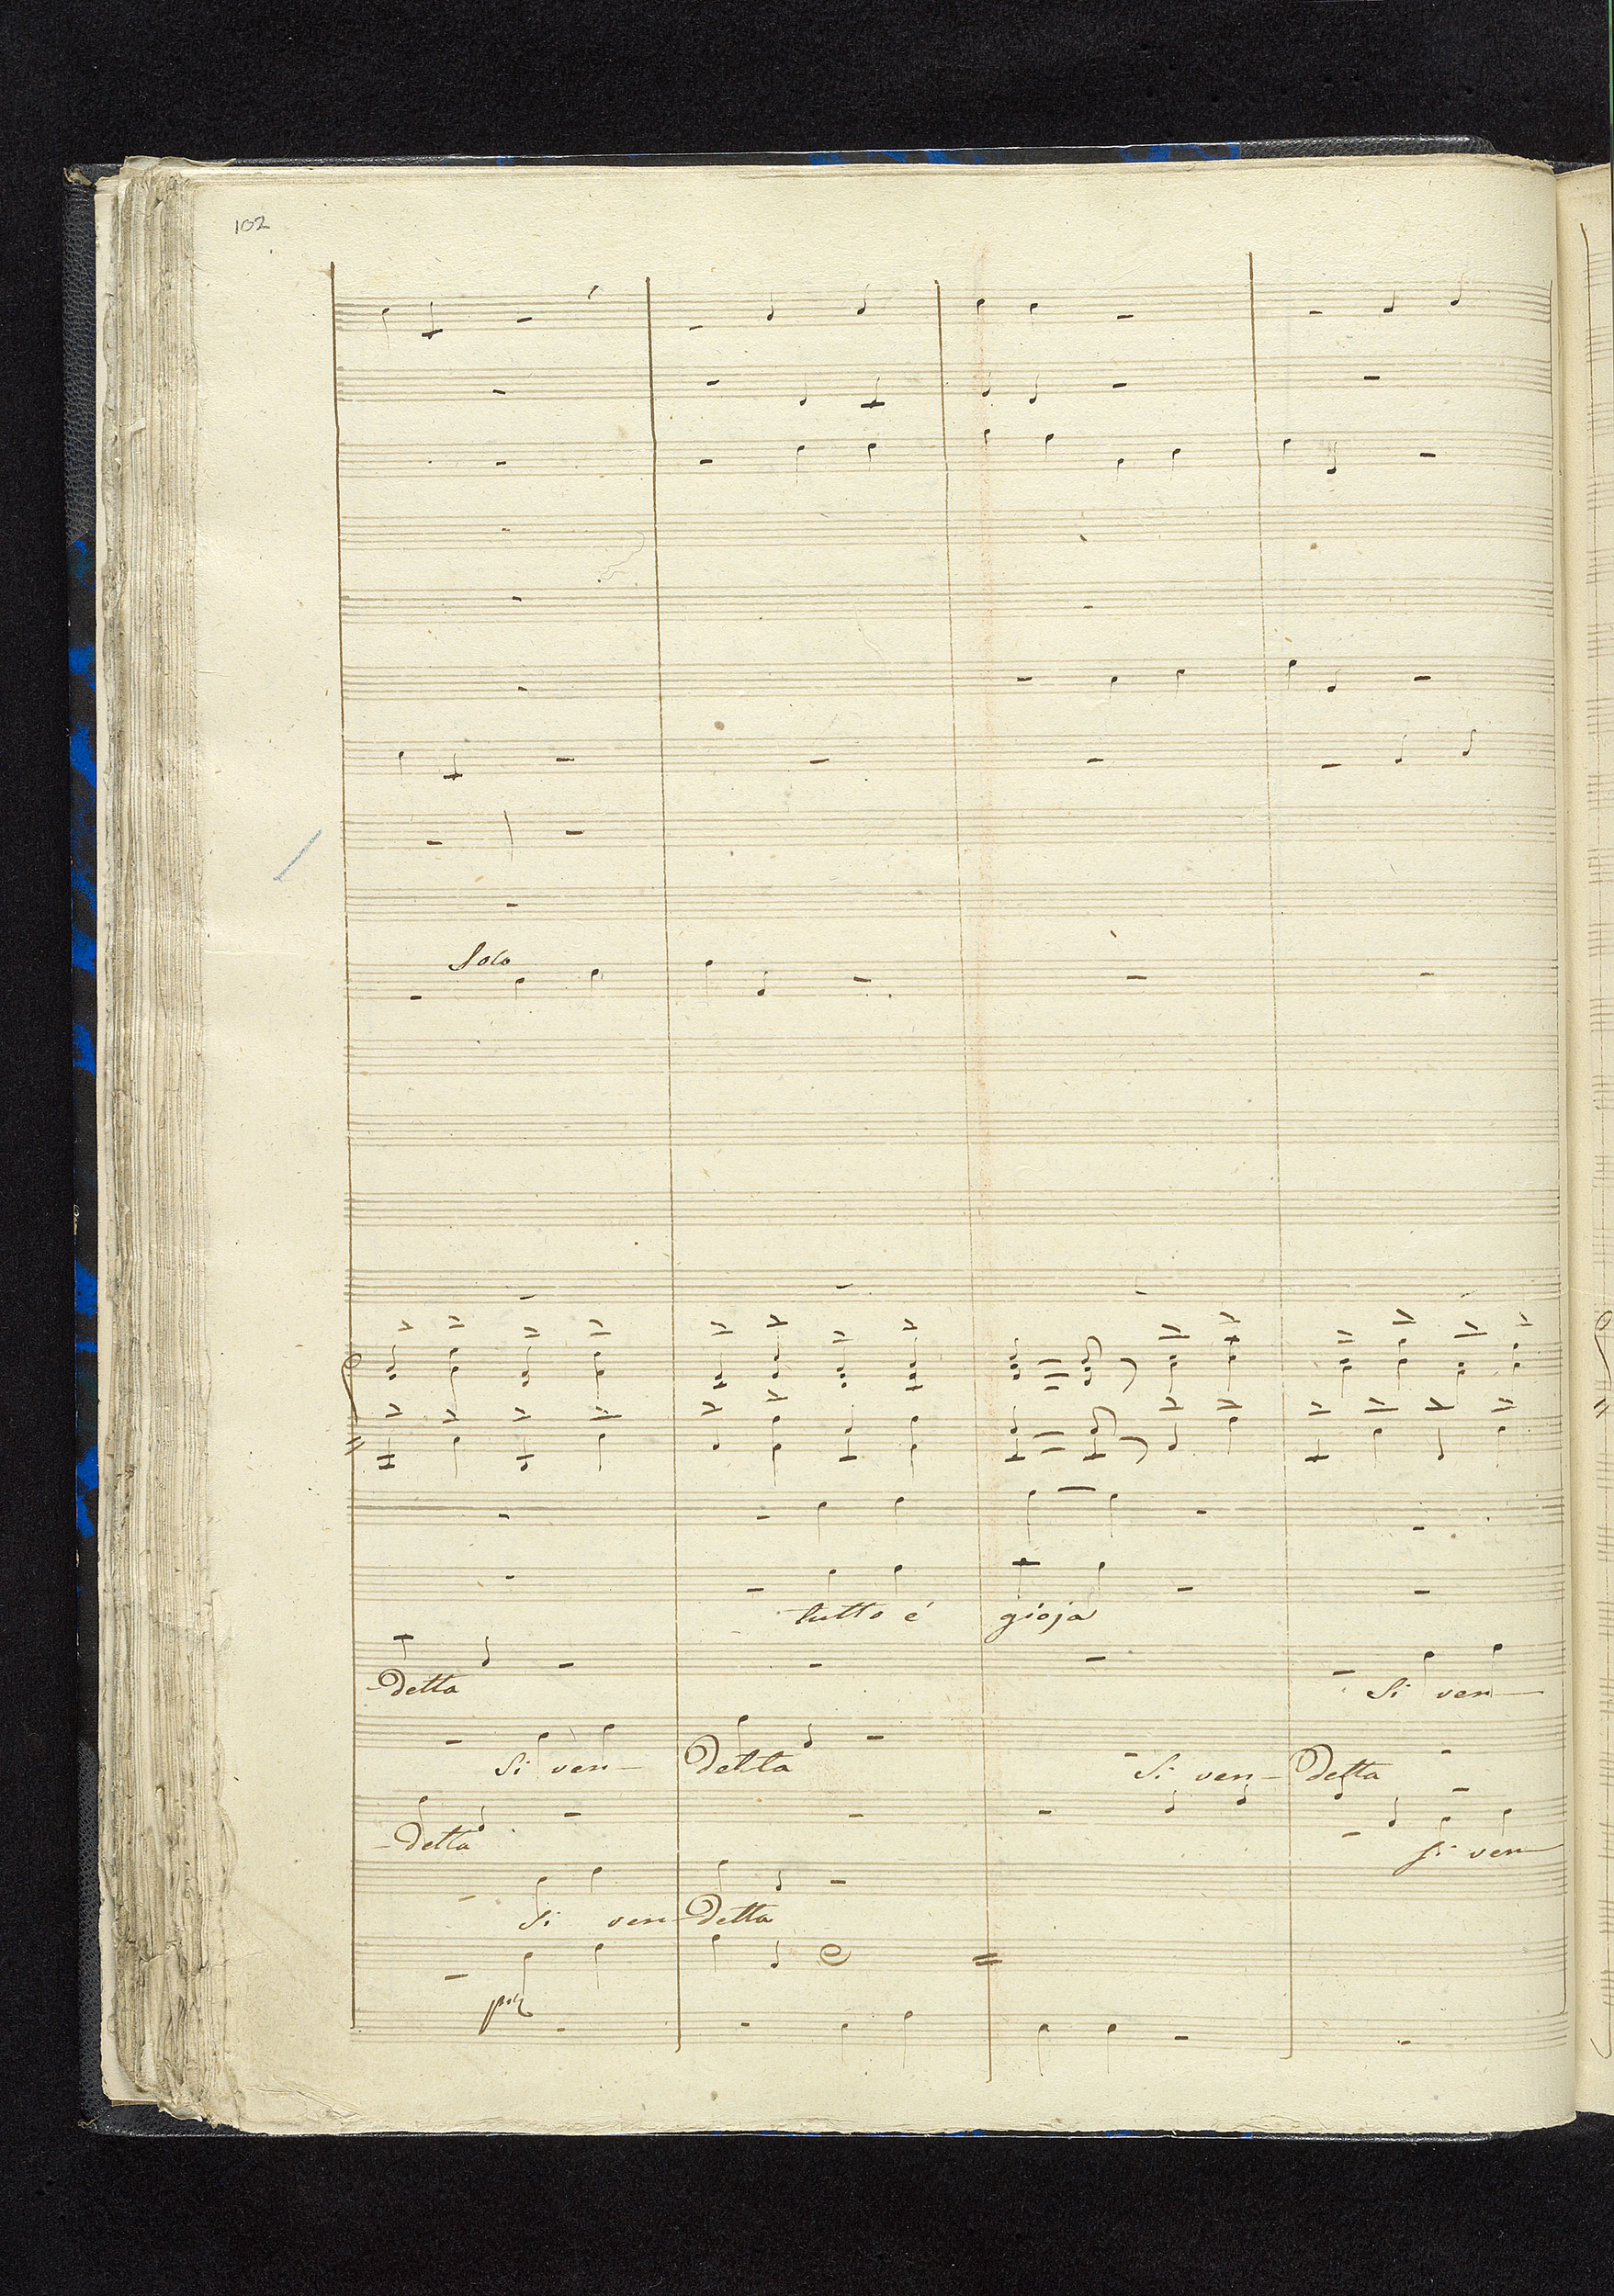 102
Solo
tutto é gioja
-detta Si ven-
Si ven- detta Si ven- detta
-detta Si ven-
Si ven- detta